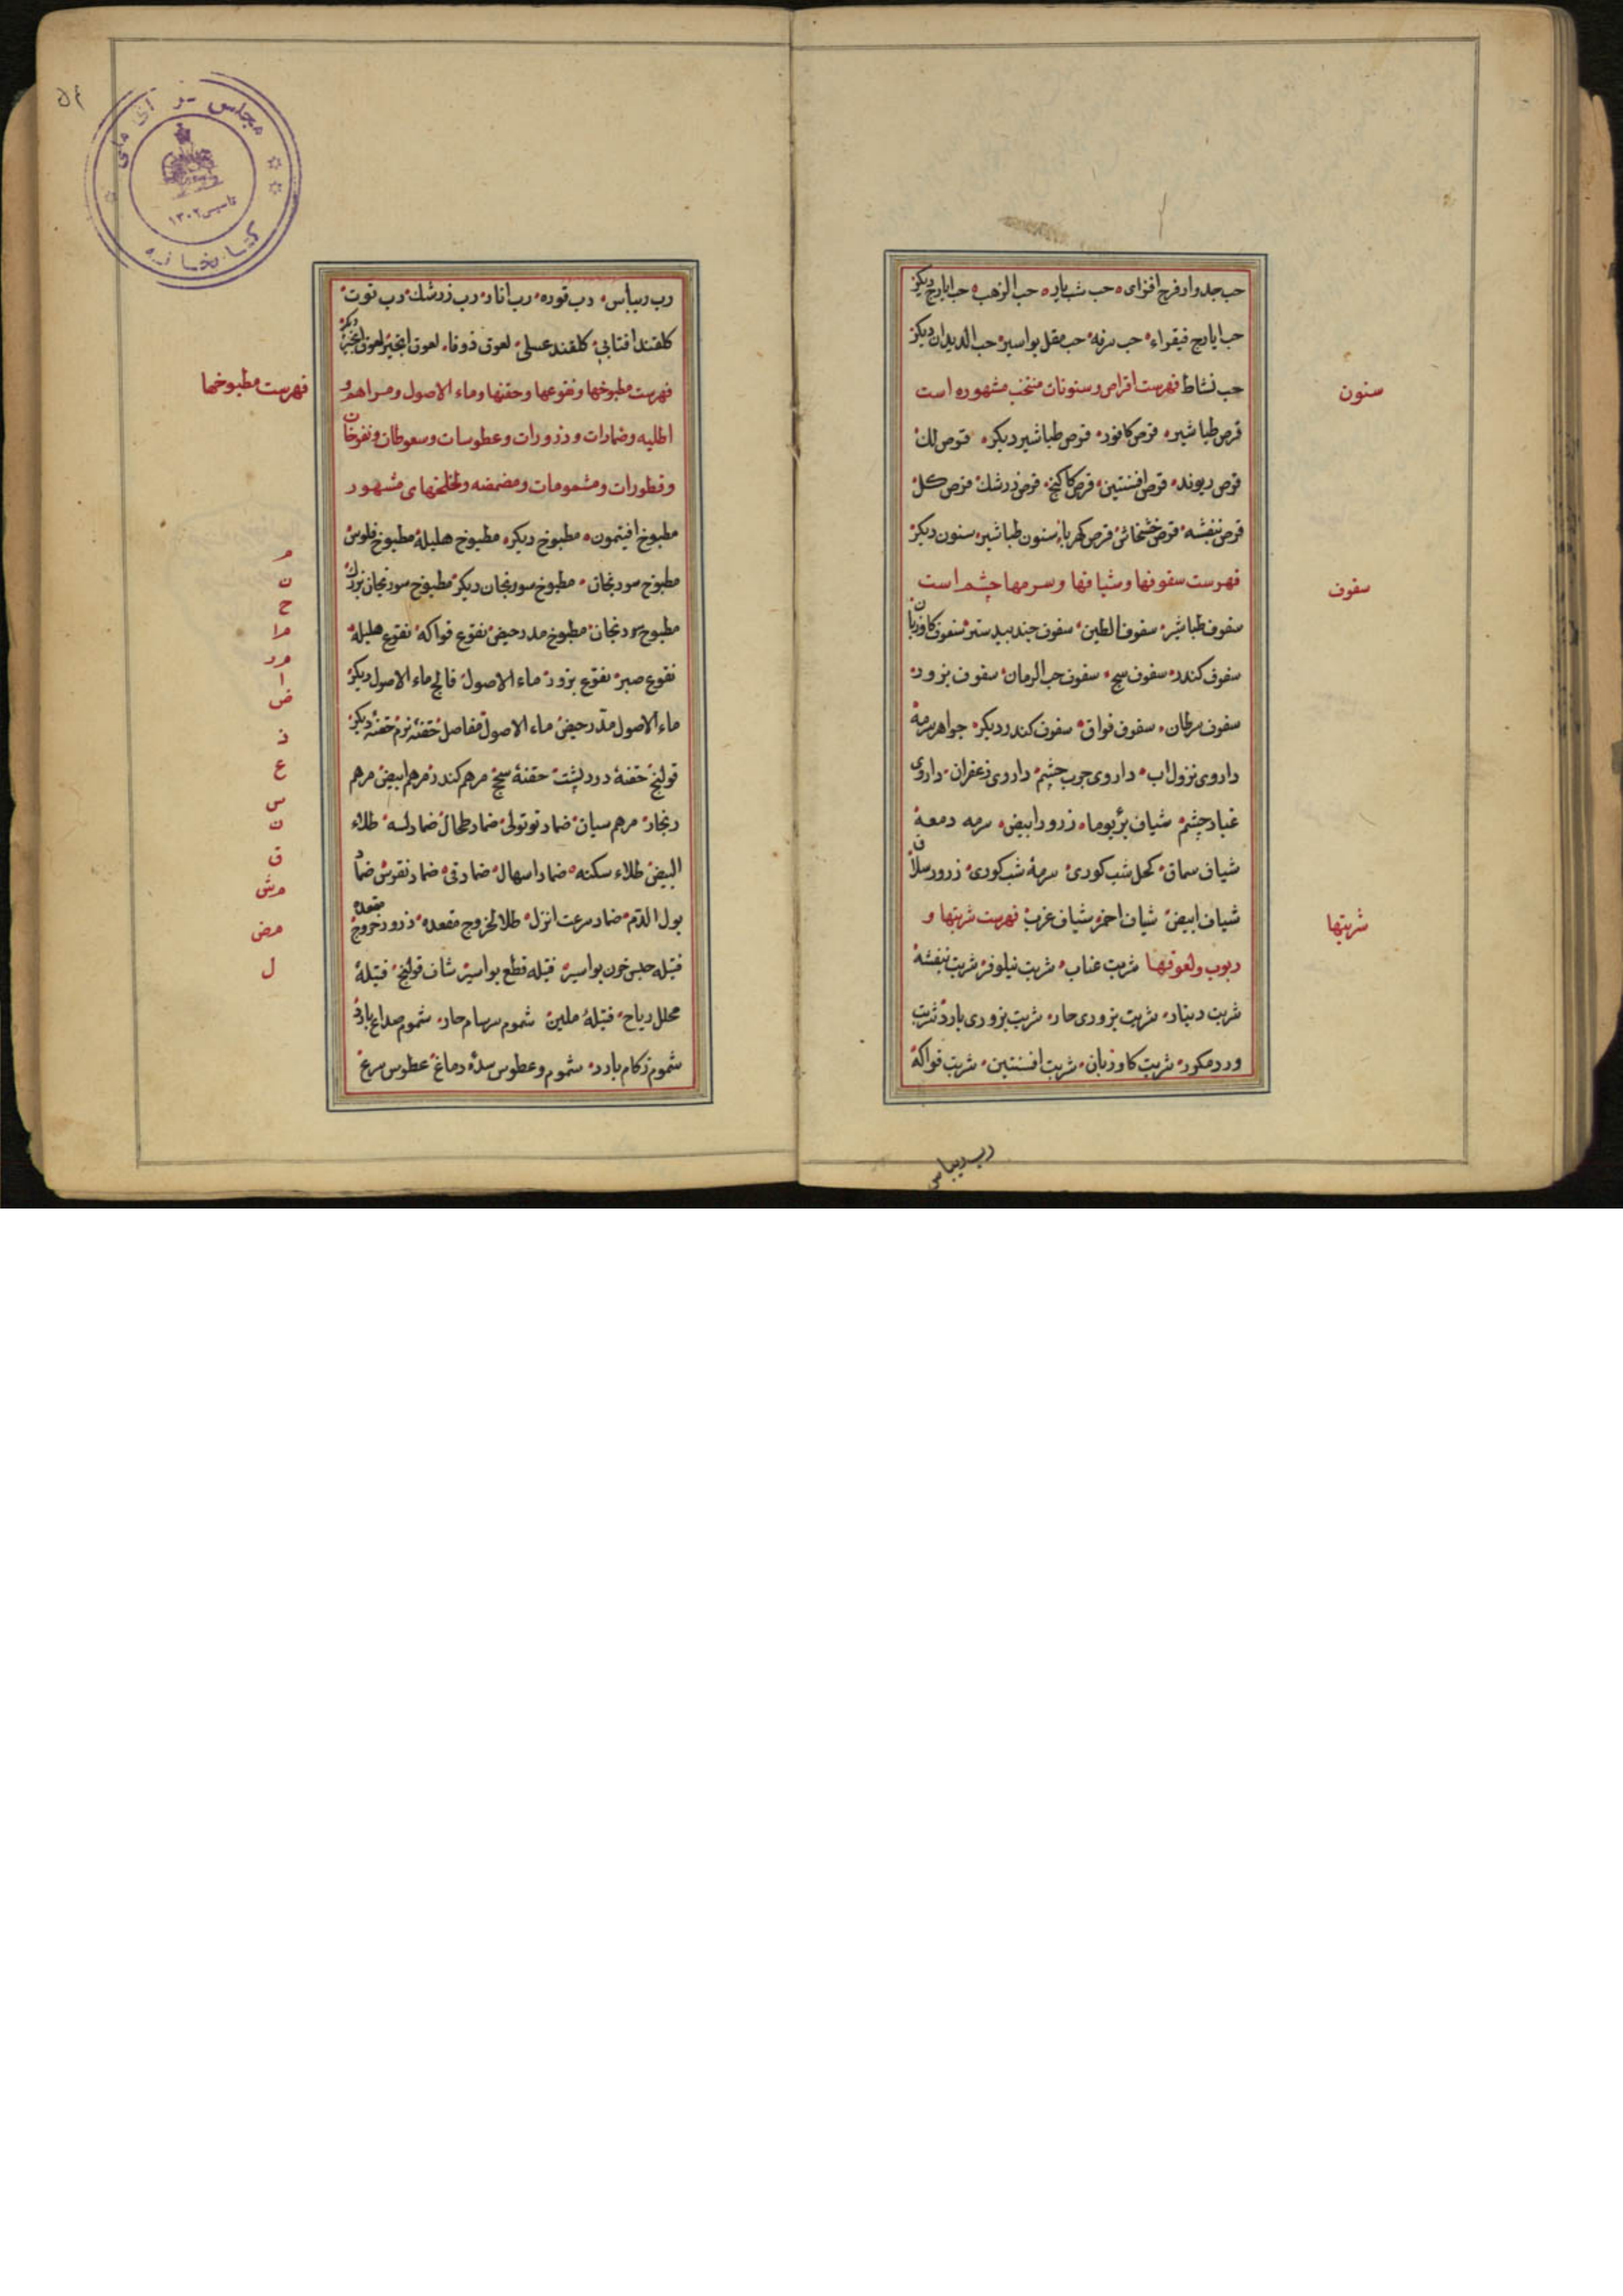 حب جدوار فرح افزای حب شب یار حب الذهب حب ایارج دیگر
حب ایارج فیقراء حب سرفه حب مقل بواسیر حب الدیدان دیگر
حب نشاط فهرست اقراص و سنونات منتخب مشهوره است
سنون
قرص طباشیر قرص کافور قرص طباشیر دیگر قرص لک
قرص ریوند قرص افسنتین قرص کاکنج قرص زرشک قرص کل
قرص بنفشه قرص خشخاش قرص کهربا سنون طباشیر سنون دیکر
فهرست سفوفها و شیافها و سرمها چشم است
سفوف
سفوف طباشیر سفوف الطین سفوف جندبیدستر سفوف کاوزبان
سفوف کندر سفوف سج سفوف حب الرمان سفوف بزور
سفوف سرطان سفوف فواق سفوف کندر دیکر جواهر سرمه
داروی نزول اب داروی جرب چشم داروی زعفران داروی
غبار چشم شیاف برء یوما زرور ابیض سرمه دمعة
شیاف سماق کحل شب کوری سرمهٔ شب کوری زرور سلاق
شیاف ابیض شیاف احمر شیاف غرب فهرست شربتها و
شربتها
ربوب و لعوقها شربت عناب شربت نیلوفر شربت بنفشه
شربت دینار شربت بزوری حار شربت بزوری بارد شربت
ورد مکرر شربت کاوزبان شربت افسنتین شربت فواکه
رب ریباس
مجلس
کتابخانه
تاسیس ۱۳۰۲
رب ریباس رب قوره رب انار رب زرشک رب توت
کلقند افتابی کلقند عسلی لعوق زوفا لعوق انجیر لعوق انجیر دیکر
فهرست مطبوخها و نقوعها و حقنها و ماء الاصول و مراهم و
فهرست مطبوخها
اطلیه و ضمادات و ذرورات و عطوسات و سعوطات و نفوخات
و قطورات و مشمومات و مضمضه و لخلخهای مشهور
مطبوخ افیتمون مطبوخ دیکر مطبوخ هلیله مطبوخ فلوس
م
مطبوخ سورنجان مطبوخ سورنجان دیکر مطبوخ سورنجان بزرک
ن
ح
مطبوخ سورنجان مطبوخ مدر حیض نقوع فواکه نقوع هلیله
ما
نقوع صبر نقوع بزور ماء الاصول فالج ماء الاصول دیکر
مر
ا
ض
ماء الاصول مدر حیض ماء الاصول مفاصل حقنهٔ نرم حقنهٔ دیکر
ذ
قولنج حقنهٔ درد پشت حقنهٔ سج مرهم کندر مرهم ابیض مرهم
ع
س
زنجار مرهم سیان ضماد توتولی ضماد طحال ضماد لسه طلاء
ن
البیض طلاء سکنه ضماد اسهال ضماد قی ضماد نقرس ضماد
ق
مش
بول الدم ضماد سرعت انزل طلا لخروج مقعده ذرور خروج مقعد
مض
فتیله حبس خون بواسیر فتیله قطع بواسیر شاف قولنج فتیلهٔ
ل
محلل ریاح فتیلهٔ ملین شموم سرسام حار شموم صداع بارد
شموم زکام بارد شموم و عطوس سدهٔ دماغ عطوس صرع